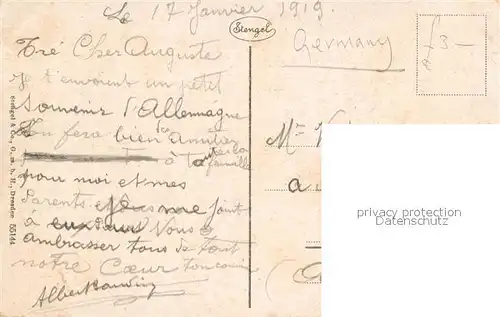 Le 17 Janvier 1919.
Stengel
Germany
3 —
Tré Cher Auguste
Je t'envoient un petit
Souvenir d'Allemagne
fera bien des Amitiez
à toute ta
famille
pour moi et mes
Parents et me joint
à Vous
ambrasser tous de tout
notre Cœur ton cousin
Albert
Stengel & Co., G. m. b. H., Dresden 55144
Mr
a
privacy protection
Datenschutz